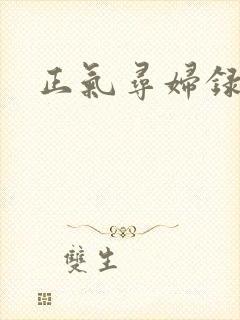 正氣尋婦録
雙生